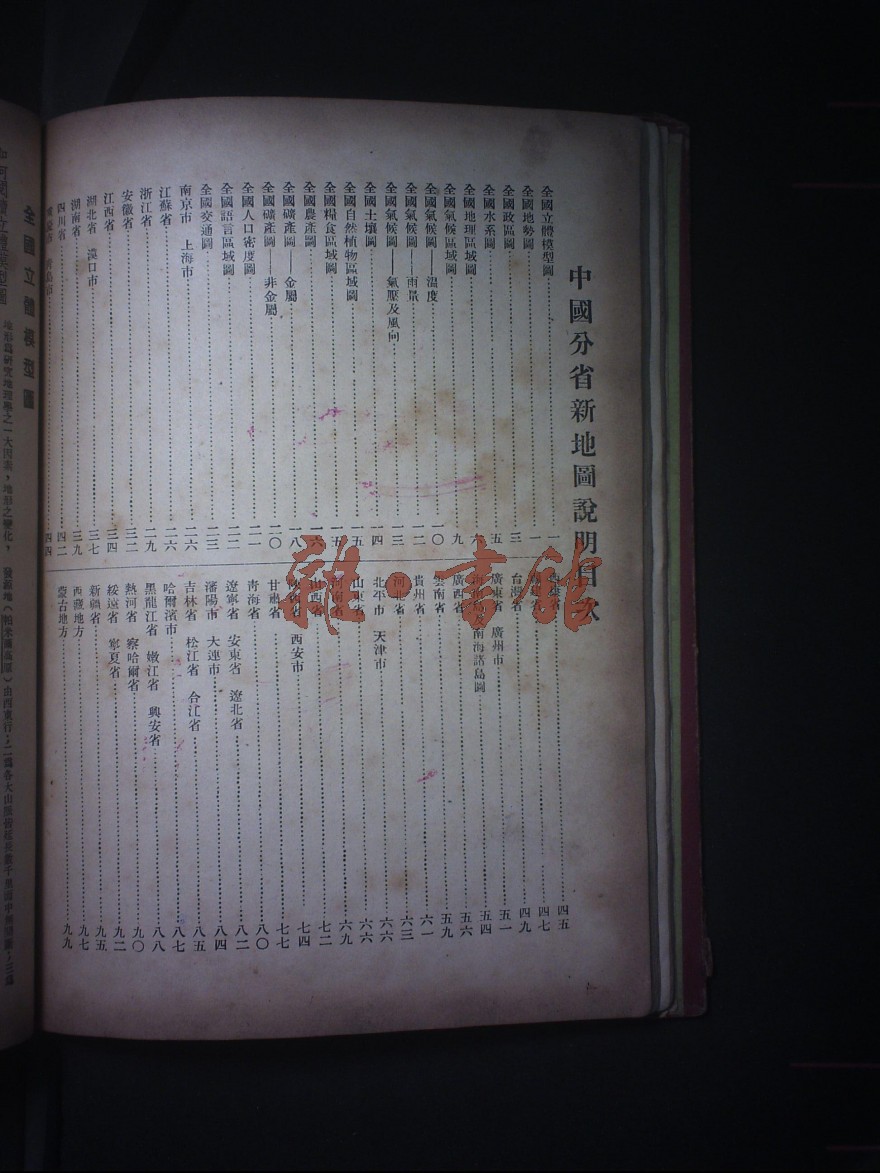 中國分省新地圖說明目次
全國立體模型圖 一
全國地勢圖 一
全國政區圖 三
全國水系圖 五
全國地理區域圖 六
全國氣候區域圖 九
全國氣候圖——溫度 一〇
全國氣候圖——雨量 一二
全國氣候圖——氣壓及風向 一三
全國土壤圖 一四
全國自然植物區域圖 一五
全國糧食區域圖 一五
全國農產圖 一六
全國礦產圖——金屬 一八
全國礦產圖——非金屬 二〇
全國人口密度圖 二一
全國語言區域圖 二二
全國交通圖 二三
南京市 上海市 二六
江蘇省 二六
浙江省 二九
安徽省 三二
江西省 三四
湖北省 漢口市 三七
湖南省 三九
四川省 四二
四四
西康省 四五
福建省 四七
台灣省 四九
廣東省 廣州市 五一
海南島及南海諸島圖 五四
廣西省 五六
雲南省 五九
貴州省 六一
河北省 六三
北平市 天津市 六六
山東省 六六
河南省 六九
山西省 七二
陝西省 西安市 七四
甘肅省 七七
青海省 八〇
遼寧省 安東省 遼北省 八二
瀋陽市 大連市 八四
吉林省 松江省 合江省 八五
哈爾濱市 八七
黑龍江省 嫩江省 興安省 八八
熱河省 察哈爾省 九〇
綏遠省 寧夏省 九二
新疆省 九五
西藏地方 九七
蒙古地方 九九
全國立體模型圖
地形為研究地理學之一大因素，地形之變化，
雜·書館